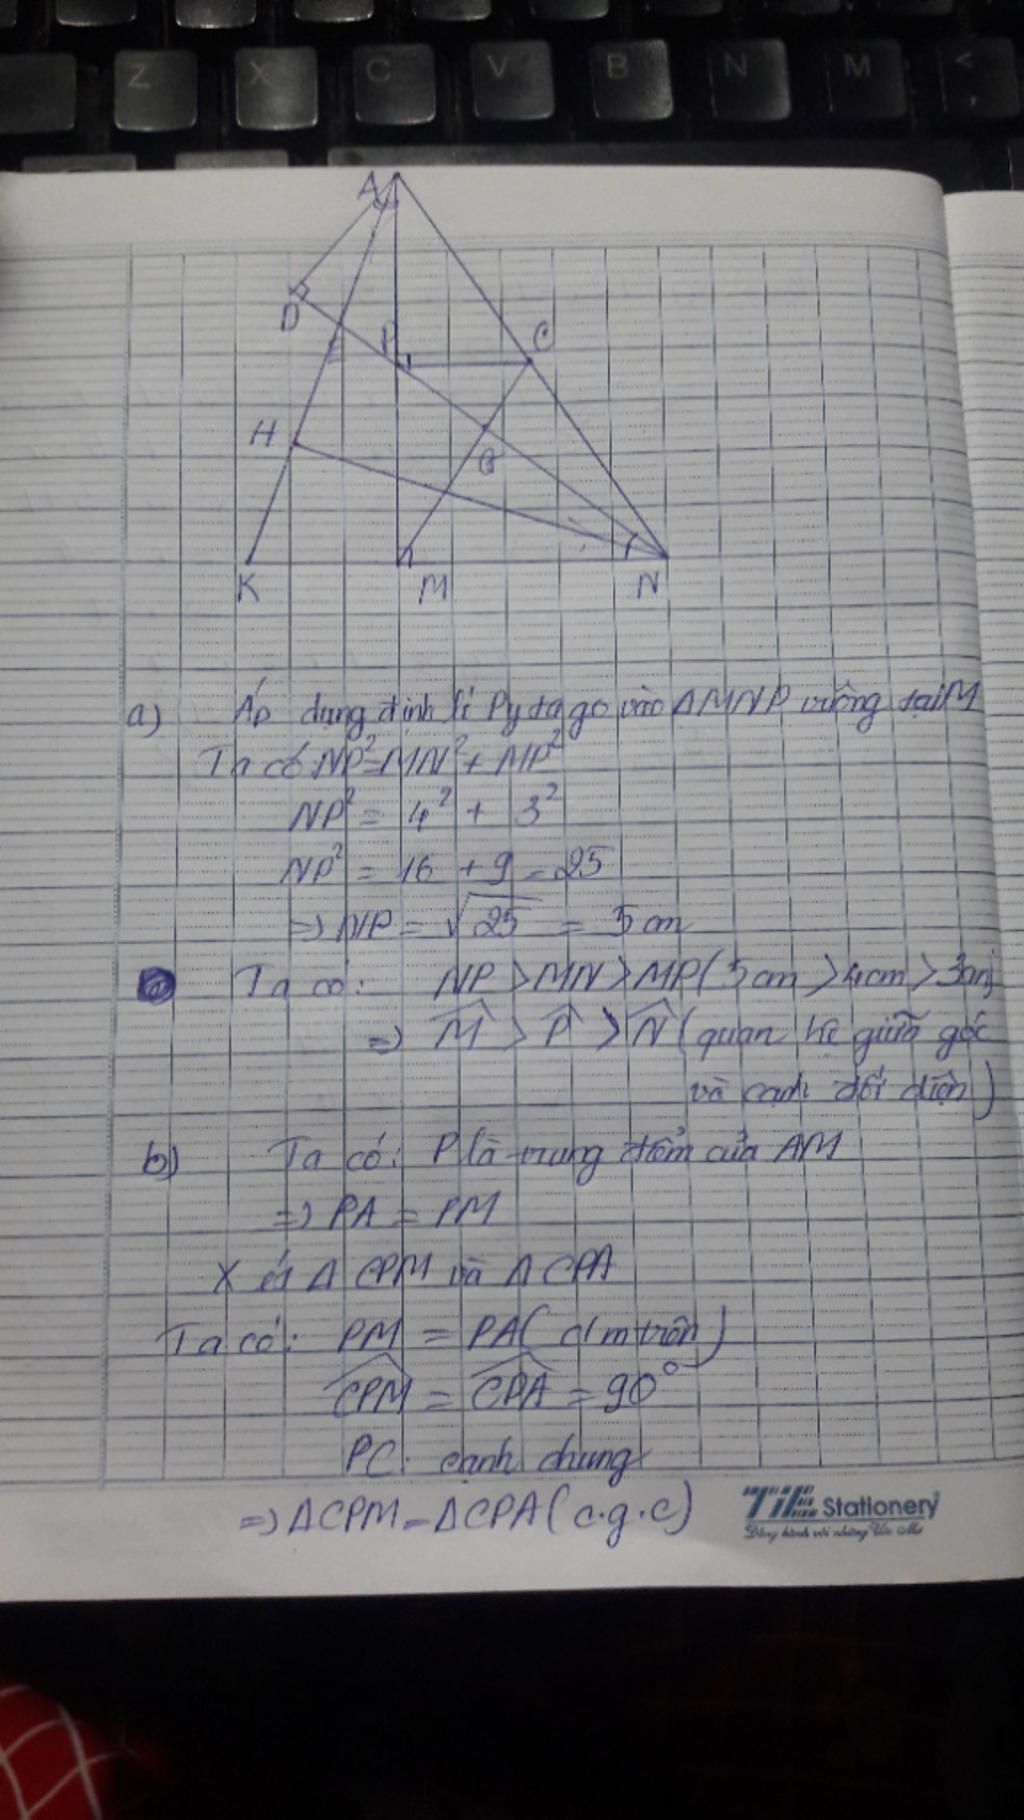 Z X C V B N M <
A
D
P
C
H
G
K M N
a) Áp dụng định lí Pytago vào ΔMNP vuông tại M
Ta có NP² = MN² + MP²
NP² = 4² + 3²
NP² = 16 + 9 = 25
=> NP = √25 = 5cm
Ta có: NP > MN > MP (5cm > 4cm > 3cm)
=> M̂ > P̂ > N̂ (quan hệ giữa góc
và cạnh đối diện)
b) Ta có: P là trung điểm của AM
=> PA = PM
Xét Δ CPM và Δ CPA
Ta có: PM = PA (cmtrên)
CPM = CPA = 90°
PC: cạnh chung
=> ΔCPM = ΔCPA (c.g.c)
TiE Stationery
Đồng hành với những Ước Mơ